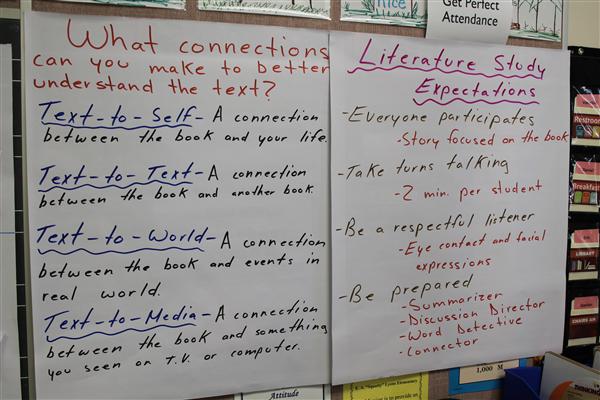 nice
Get Perfect
Attendance
What connections
can you make to better
understand the text?
Text-to-Self- A connection
between the book and your life.
Text-to-Text- A connection
between the book and another book.
Text-to-World- A connection
between the book and events in
real world.
Text-to-Media- A connection
between the book and something
you seen on T.V. or computer.
Literature Study
Expectations
-Everyone participates
-Story focused on the book
-Take turns talking
-2 min. per student
-Be a respectful listener
-Eye contact and facial
expressions
-Be prepared
-Summarizer
-Discussion Director
-Word Detective
-Connector
Restroom
Breakfast
LIBRARY
Attitude
1,000 M